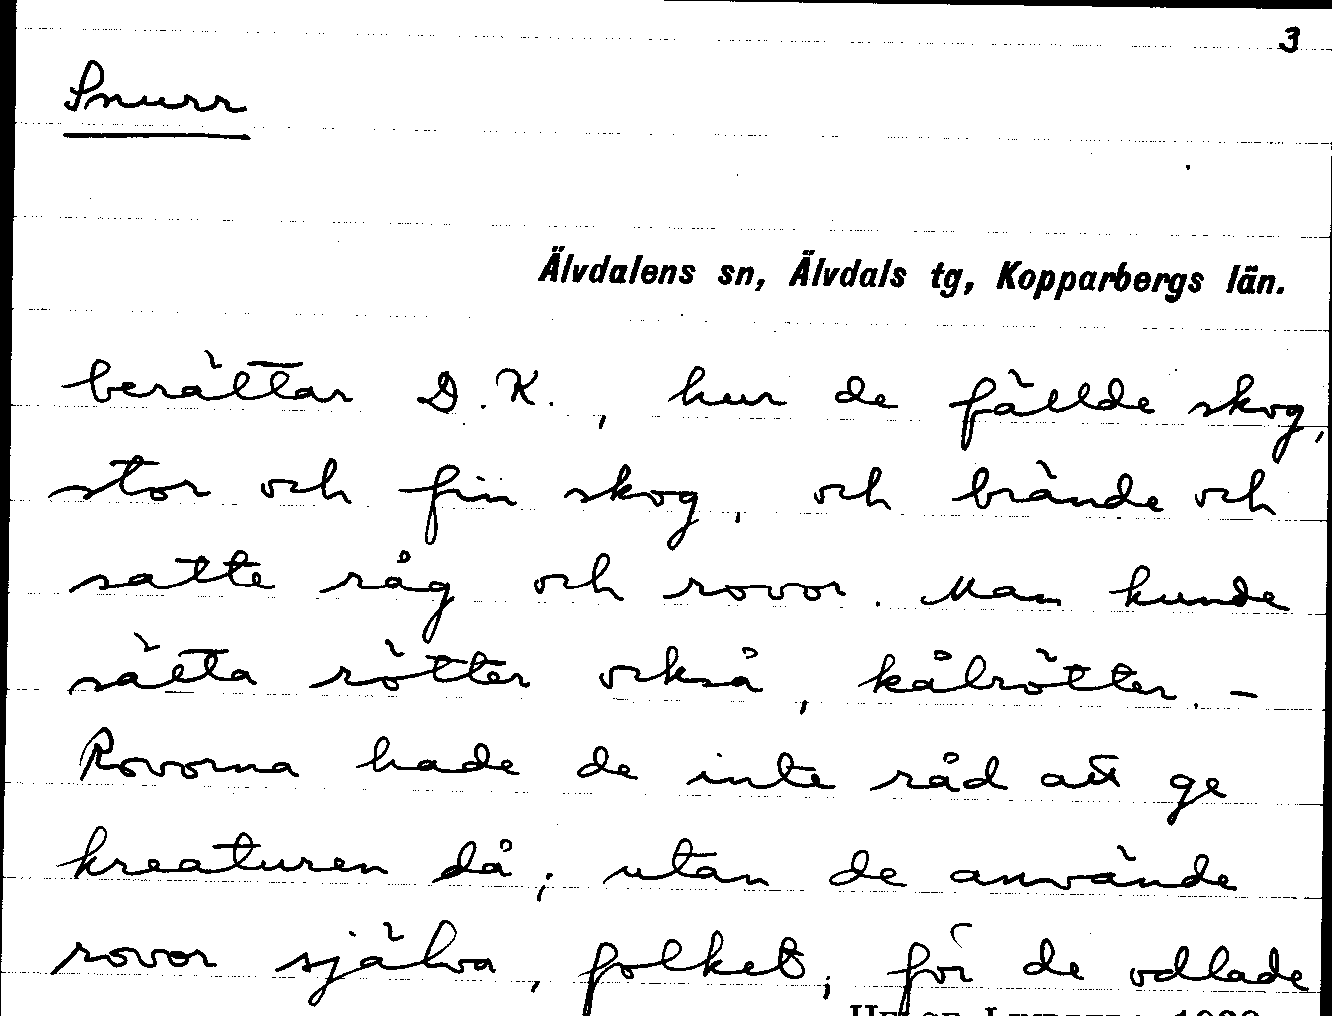 3
Snurr
Älvdalens sn, Älvdals tg, Kopparbergs län.
berättar D.K., hur de fällde skog,
stor och fin skog, och brände och
satte råg och rovor. Man kunde
sätta rötter också, kålrötter. –
Rovorna hade de inte råd att ge
kreaturen då; utan de använde
rovor själva, folket; för de odlade